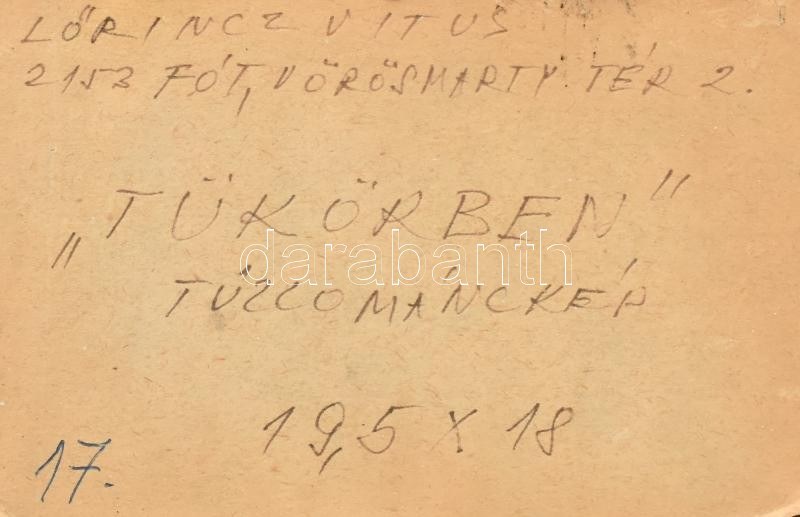 LŐRINCZ VITUS
2153 FÓT, VÖRÖSMARTY TÉR 2.
„TÜKÖRBEN"
darabanth
TŰZZOMÁNCKÉP
19,5 x 18
17.